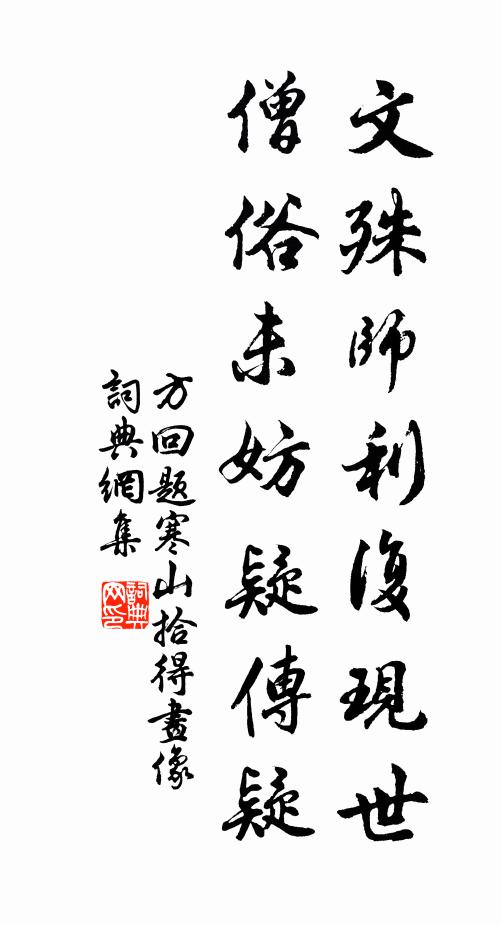 文殊師利復現世
僧俗未妨疑傳疑
方回題寒山拾得畫像
詞典網集
詞典网印